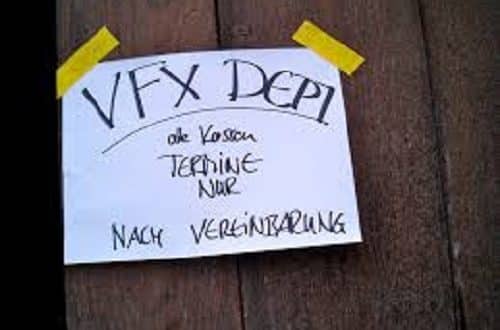 VFX DEPT
alle Kassen
TERMINE
NUR
NACH VEREINBARUNG